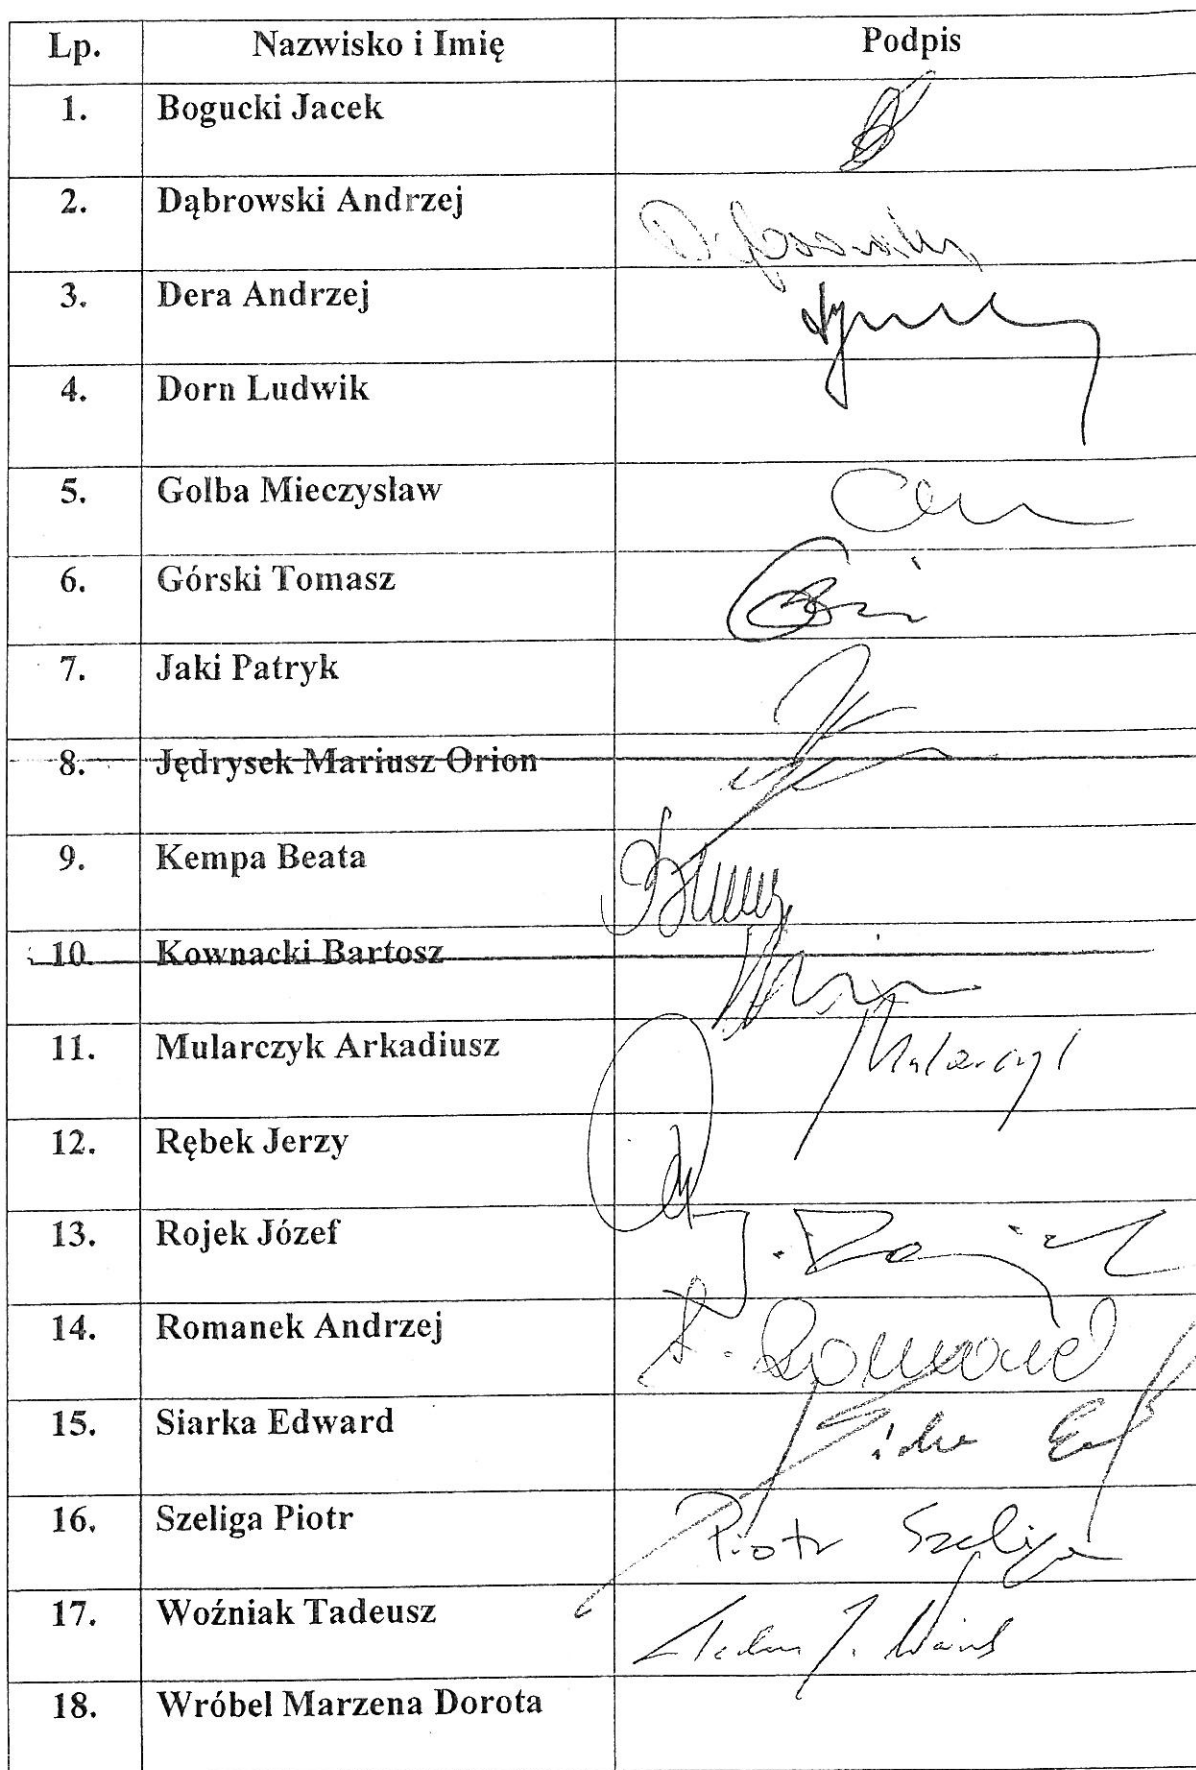 Lp. Nazwisko i Imię Podpis
1. Bogucki Jacek
2. Dąbrowski Andrzej
3. Dera Andrzej
4. Dorn Ludwik
5. Golba Mieczysław
6. Górski Tomasz
7. Jaki Patryk
8. Jędrysek Mariusz Orion
9. Kempa Beata
10. Kownacki Bartosz
11. Mularczyk Arkadiusz Mularczyk
12. Rębek Jerzy
13. Rojek Józef J. Rojek
14. Romanek Andrzej A. Romanek
15. Siarka Edward
16. Szeliga Piotr Piotr Szeliga
17. Woźniak Tadeusz
18. Wróbel Marzena Dorota